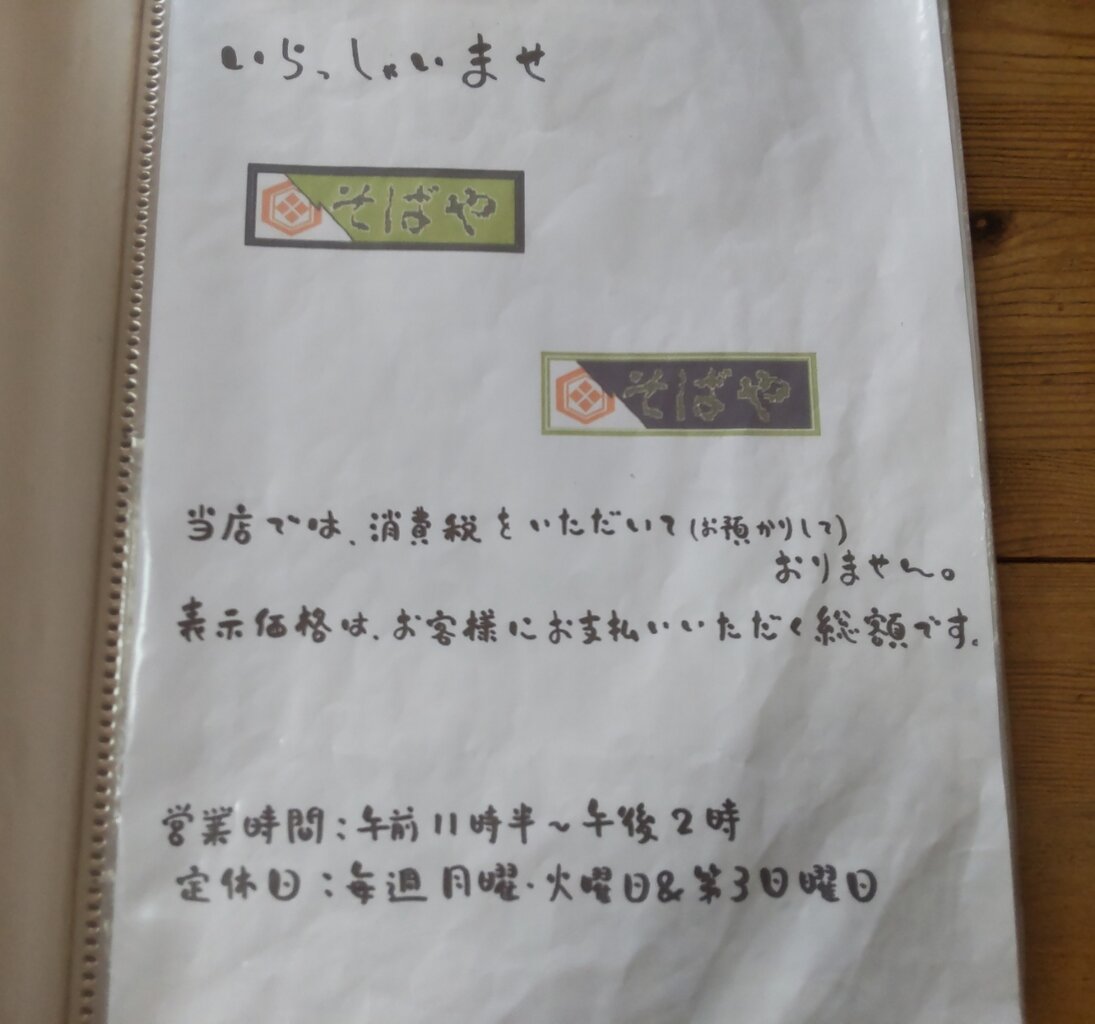 いらっしゃいませ
そばや
そばや
当店では、消費税をいただいて(お預かりして)
おりません。
表示価格は、お客様にお支払いいただく総額です。
営業時間:午前11時半~午後2時
定休日:毎週月曜・火曜日&第3日曜日